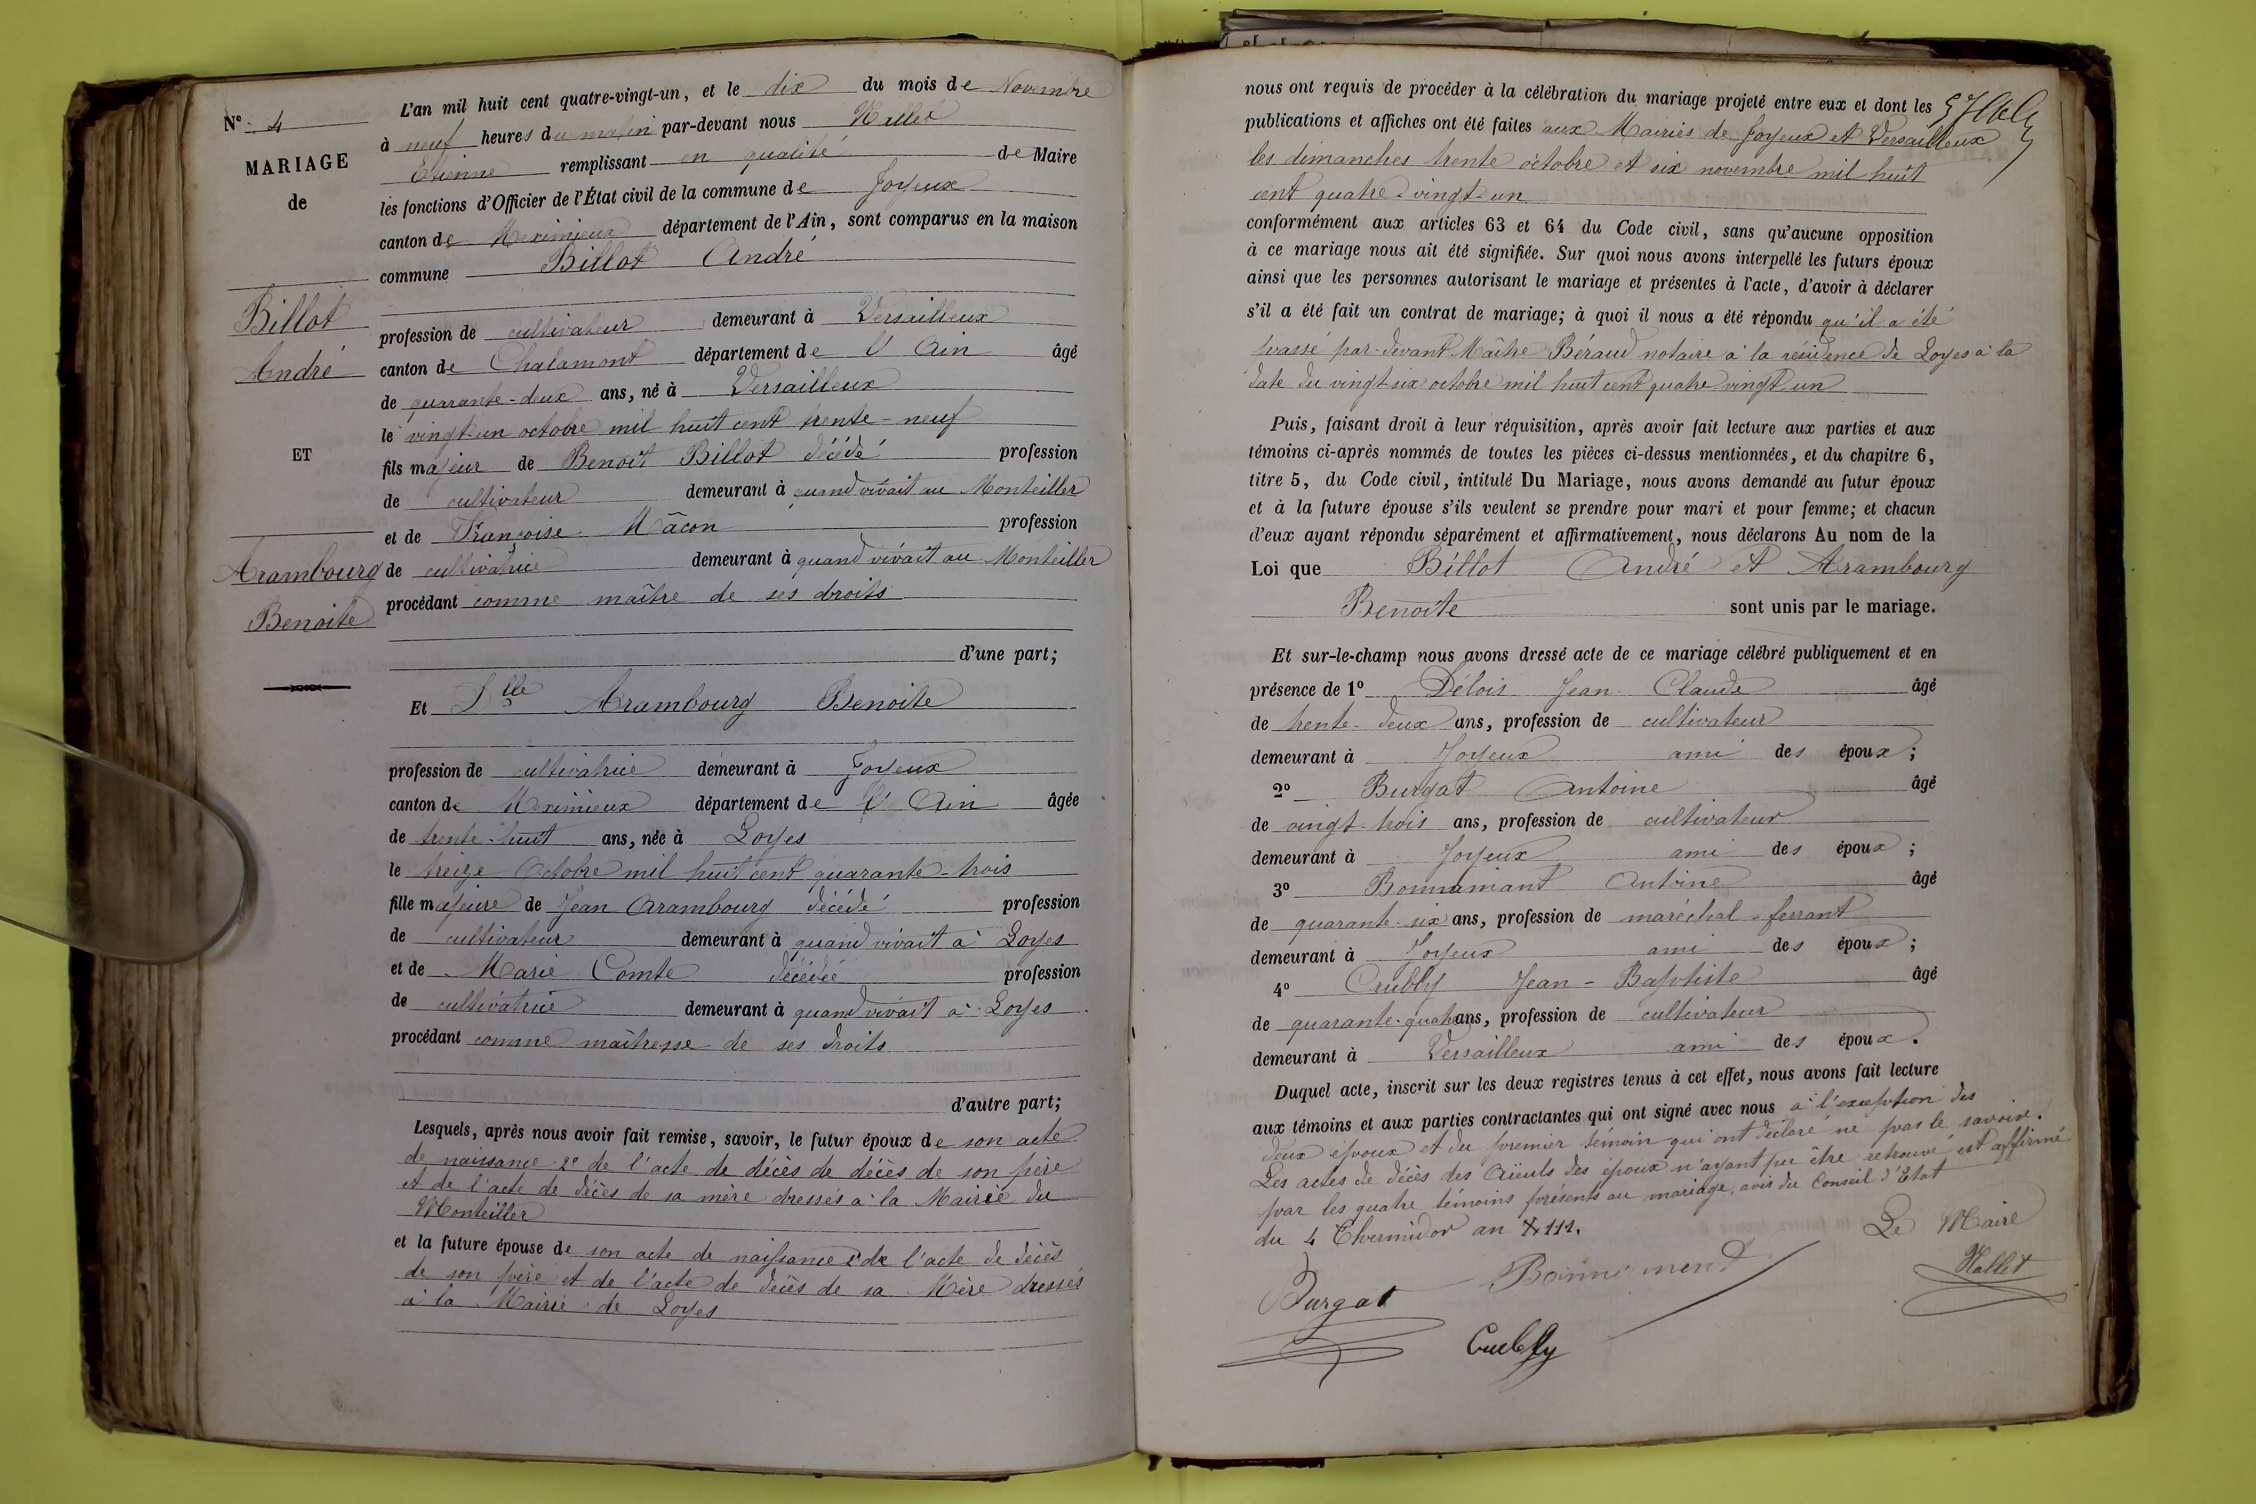 N° 4
MARIAGE
de
Billot
André
ET
Arambourg
Benoite
L'an mil huit cent quatre-vingt-un, et le dix du mois de Novembre
à neuf heures du matin par-devant nous Mallet
Etienne remplissant en qualité de Maire
les fonctions d'Officier de l'État civil de la commune de Joyeux
canton de Meximieux département de l'Ain, sont comparus en la maison
commune Billot André
profession de cultivateur demeurant à Versailleux
canton de Chalamont département de l'Ain âgé
de quarante-deux ans, né à Versailleux
le vingt-un octobre mil huit cent trente-neuf
fils majeur de Benoit Billot décédé profession
de cultivateur demeurant à quand vivait au Monteiller
et de Françoise Mâcon profession
de cultivatrice demeurant à quand vivait au Monteiller
procédant comme maître de ses droits
d'une part;
Et Dlle Arambourg Benoite
profession de cultivatrice demeurant à Joyeux
canton de Meximieux département de l'Ain âgée
de trente-huit ans, née à Loyes
le treize Octobre mil huit cent quarante-trois
fille majeure de Jean Arambourg décédé profession
de cultivateur demeurant à quand vivait à Loyes
et de Marie Comte décédée profession
de cultivatrice demeurant à quand vivait à Loyes
procédant comme maîtresse de ses droits
d'autre part;
Lesquels, après nous avoir fait remise, savoir, le futur époux de son acte
de naissance 2° de l'acte de décès de décès de son père
et de l'acte de décès de sa mère dressés à la Mairie du
Monteiller
et la future épouse de son acte de naissance 2° de l'acte de décès
de son père et de l'acte de décès de sa Mère dressés
à la Mairie de Loyes
nous ont requis de procéder à la célébration du mariage projeté entre eux et dont les
publications et affiches ont été faites aux Mairies de Joyeux et Versailleux
les dimanches trente octobre et six novembre mil huit
cent quatre-vingt-un
conformément aux articles 63 et 64 du Code civil, sans qu'aucune opposition
à ce mariage nous ait été signifiée. Sur quoi nous avons interpellé les futurs époux
ainsi que les personnes autorisant le mariage et présentes à l'acte, d'avoir à déclarer
s'il a été fait un contrat de mariage; à quoi il nous a été répondu qu'il a été
passé par-devant Maître Béraud notaire à la résidence de Loyes à la
date du vingt-six octobre mil huit cent quatre vingt un
Puis, faisant droit à leur réquisition, après avoir fait lecture aux parties et aux
témoins ci-après nommés de toutes les pièces ci-dessus mentionnées, et du chapitre 6,
titre 5, du Code civil, intitulé Du Mariage, nous avons demandé au futur époux
et à la future épouse s'ils veulent se prendre pour mari et pour femme; et chacun
d'eux ayant répondu séparément et affirmativement, nous déclarons Au nom de la
Loi que Billot André et Arambourg
Benoite sont unis par le mariage.
Et sur-le-champ nous avons dressé acte de ce mariage célébré publiquement et en
présence de 1° Délois Jean Claude âgé
de trente-deux ans, profession de cultivateur
demeurant à Joyeux ami des époux;
2° Burgat Antoine âgé
de vingt-trois ans, profession de cultivateur
demeurant à Joyeux ami des époux;
3° Bonnamant Antoine âgé
de quarante-six ans, profession de maréchal-ferrant
demeurant à Joyeux ami des époux;
4° Crubly Jean-Baptiste âgé
de quarante-quatre ans, profession de cultivateur
demeurant à Versailleux ami des époux.
Duquel acte, inscrit sur les deux registres tenus à cet effet, nous avons fait lecture
aux témoins et aux parties contractantes qui ont signé avec nous à l'exception des
deux époux et du premier témoin qui ont déclaré ne pas le savoir.
Les actes de décès des Aïeuls des époux n'ayant pu être retrouvé est affirmé
par les quatre témoins présents au mariage, avis du Conseil d'Etat
du 4 Thermidor an XIII.
Le Maire
Burgat
Mallet